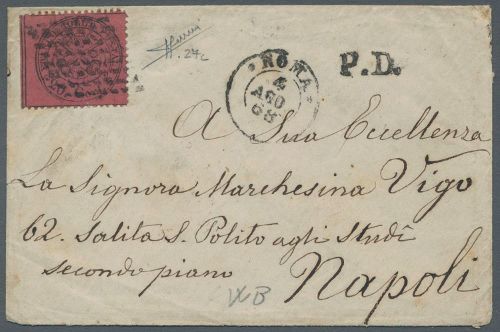 N. 27c
ROMA
4
AGO
68
P.D.
A Sua Eccellenza
La Signora Marchesina Vigo
62. Salita S. Polito agli Studî
secondo piano
Napoli
WB